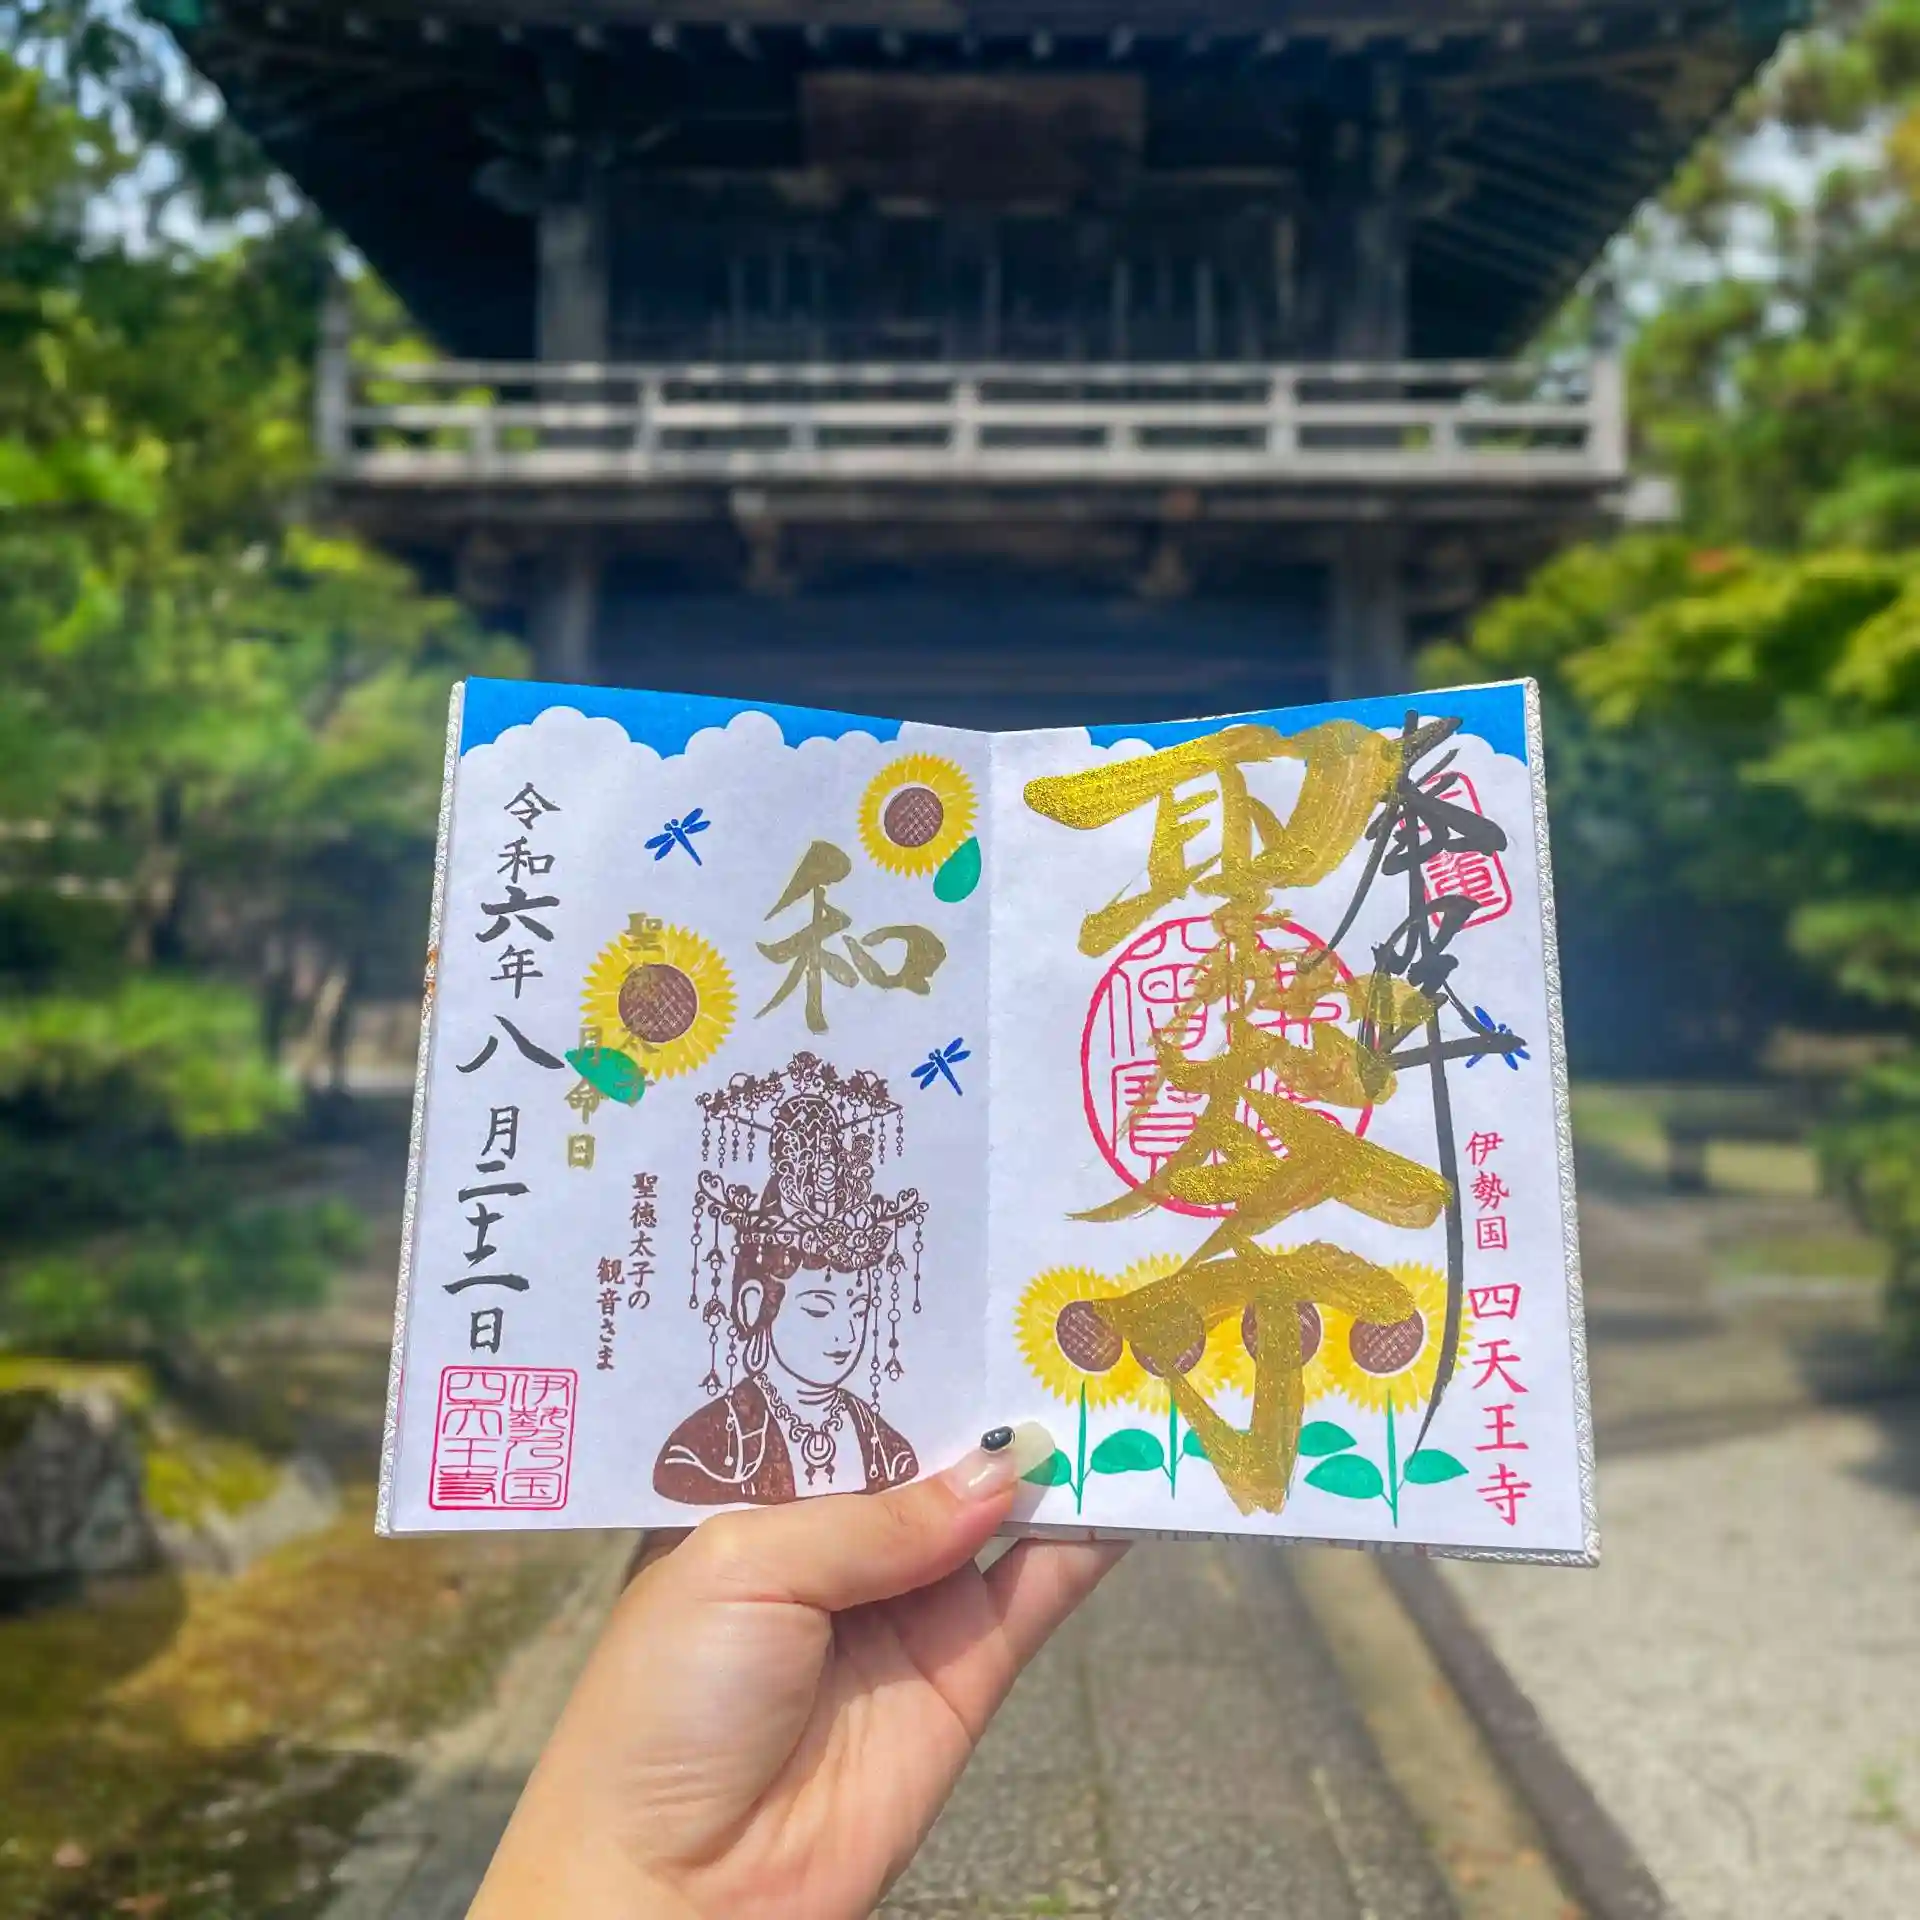 奉拝
聖徳太子
佛法僧寶
伊勢国 四天王寺
和
聖徳太子
月命日
聖徳太子の
観音さま
令和六年八月二十二日
伊勢乃国
四天王寺